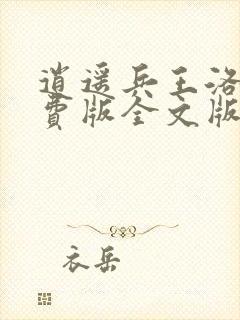 逍遥兵王洛
费版全文版
衣岳